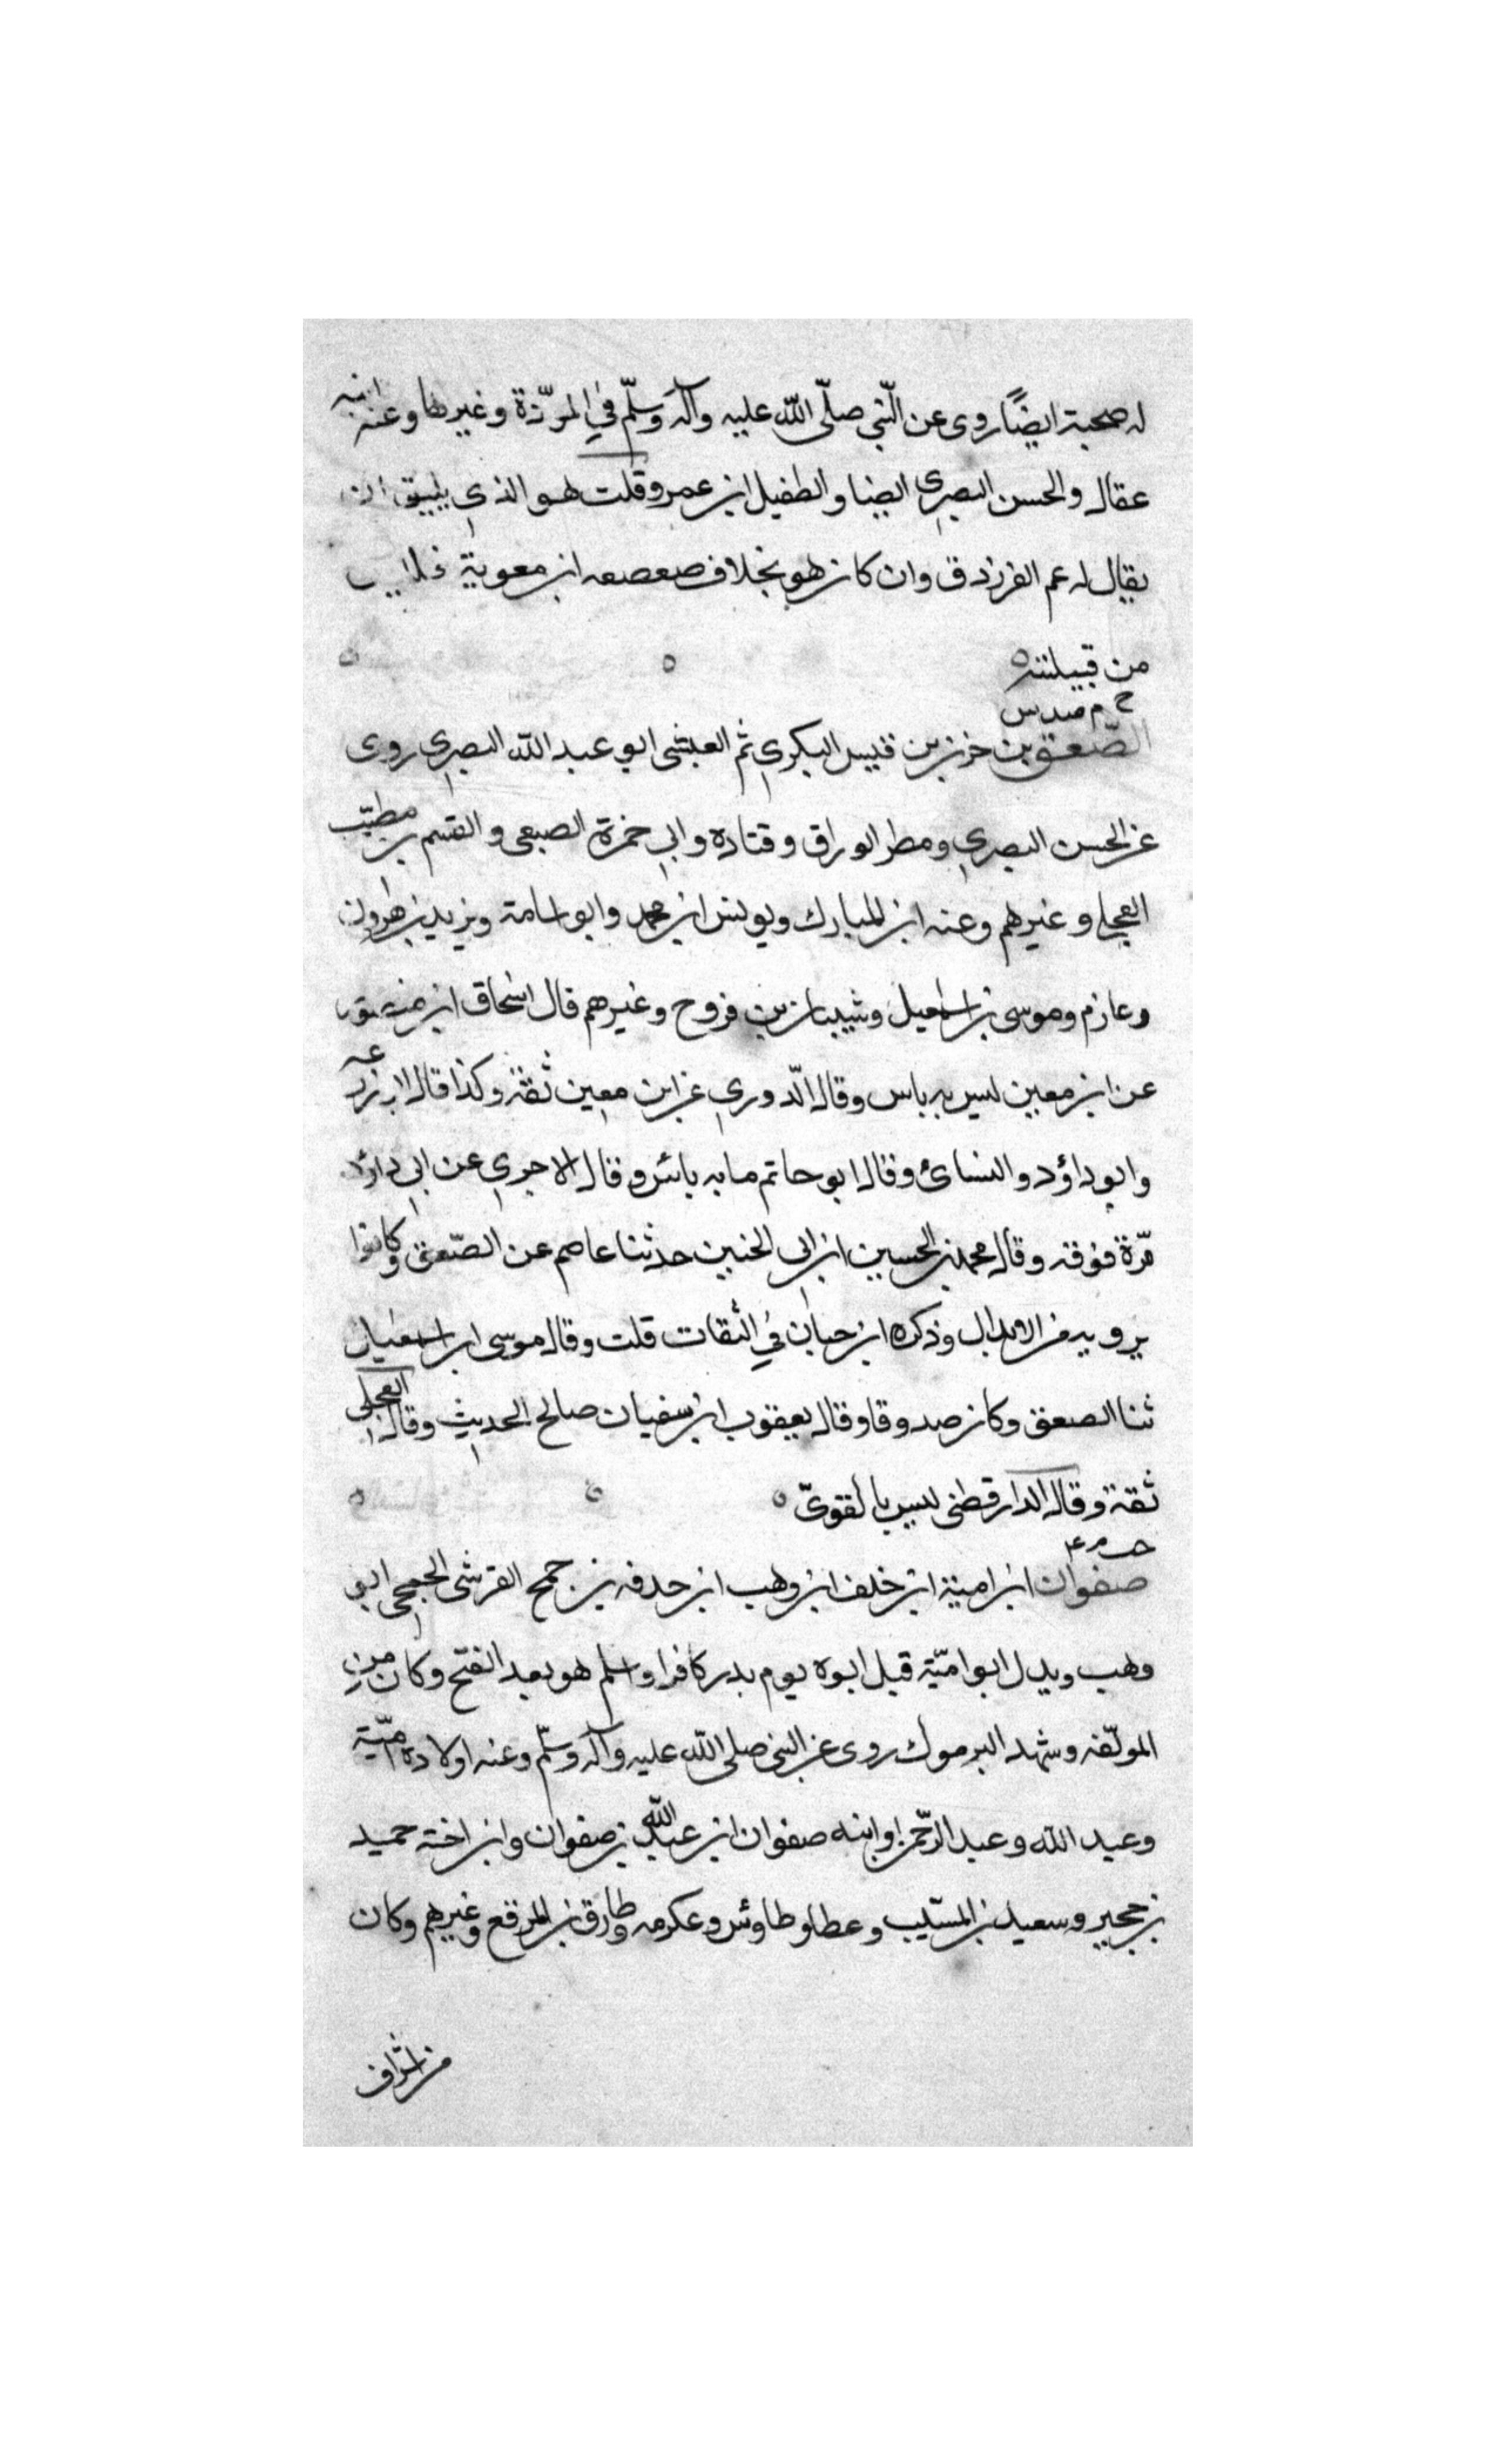 له صحبة ايضًا روى عن النّبي صلّى اللّه عليه وآله وسلّم في الموّذة وغيرها وعنه ابنه
عقال والحسن البصري ايضا والطفيل ابن عمرو قلت هو الذي يليق ان
يقال له عم الفرزدق وان كان هو بخلاف صعصعه ابن معوية
من قبيلته
خ م مد س
الصّعق بن حزن بن قيس البكري ثم العيشى ابو عبد اللّه البصري روى
عن الحسن البصري ومطر الوراق وقتاده وابي حمزة الضبعى والقسم بن مطيّب
العجلي وغيرهم وعنه ابن المبارك ويونس ابن محمد وابو اسامة ويزيد بن هرون
وعازم وموسى بن اسمعيل وشيبان بن فروح وغيرهم قال اسحاق ابن منصور
عن ابن معين ليس به باس وقال الدّوري عن ابن معين ثقة وكذا قال ابو زرعه
وابو داؤد والنسائ وقال ابو حاتم ما به باس وقال الاجري عن ابي داؤد
مّرة فوقه وقال محمد بن الحسين ابن ابي الحنين حدثنا عاصم عن الصّعق وكانوا
يرويه من الابدال وذكره ابن حبان في الثقات قلت وقال موسى ابن اسمعيل
ثنا الصعق وكان صدوقا وقال يعقوب ابن سفيان صالح الحديث وقال العجلي
ثقة وقال الدارقطنى ليس بالقوىّ
خت م ٤
صفوان ابن امية ابن خلف ابن وهب ابن حدفه بن جمح القرشى الجمحي ابو
وهب ويدل ابو اميّة قبل ابوه يوم بدر كافرا واسلم هو بعد الفتح وكان من
المولّفه وشهد اليرموك روى عن النبي صلى اللّه عليه وآله وسلّم وعنه اولاده اميّة
وعبد اللّه وعبد الرّحمن وابنه صفوان ابن عبد اللّه بن صفوان وابن اخته حميد
بن حجير وسعيد بن المسيّب وعطا وطاوس وعكرمه وطارق بن المرقع وغيرهم وكان
من اشراف